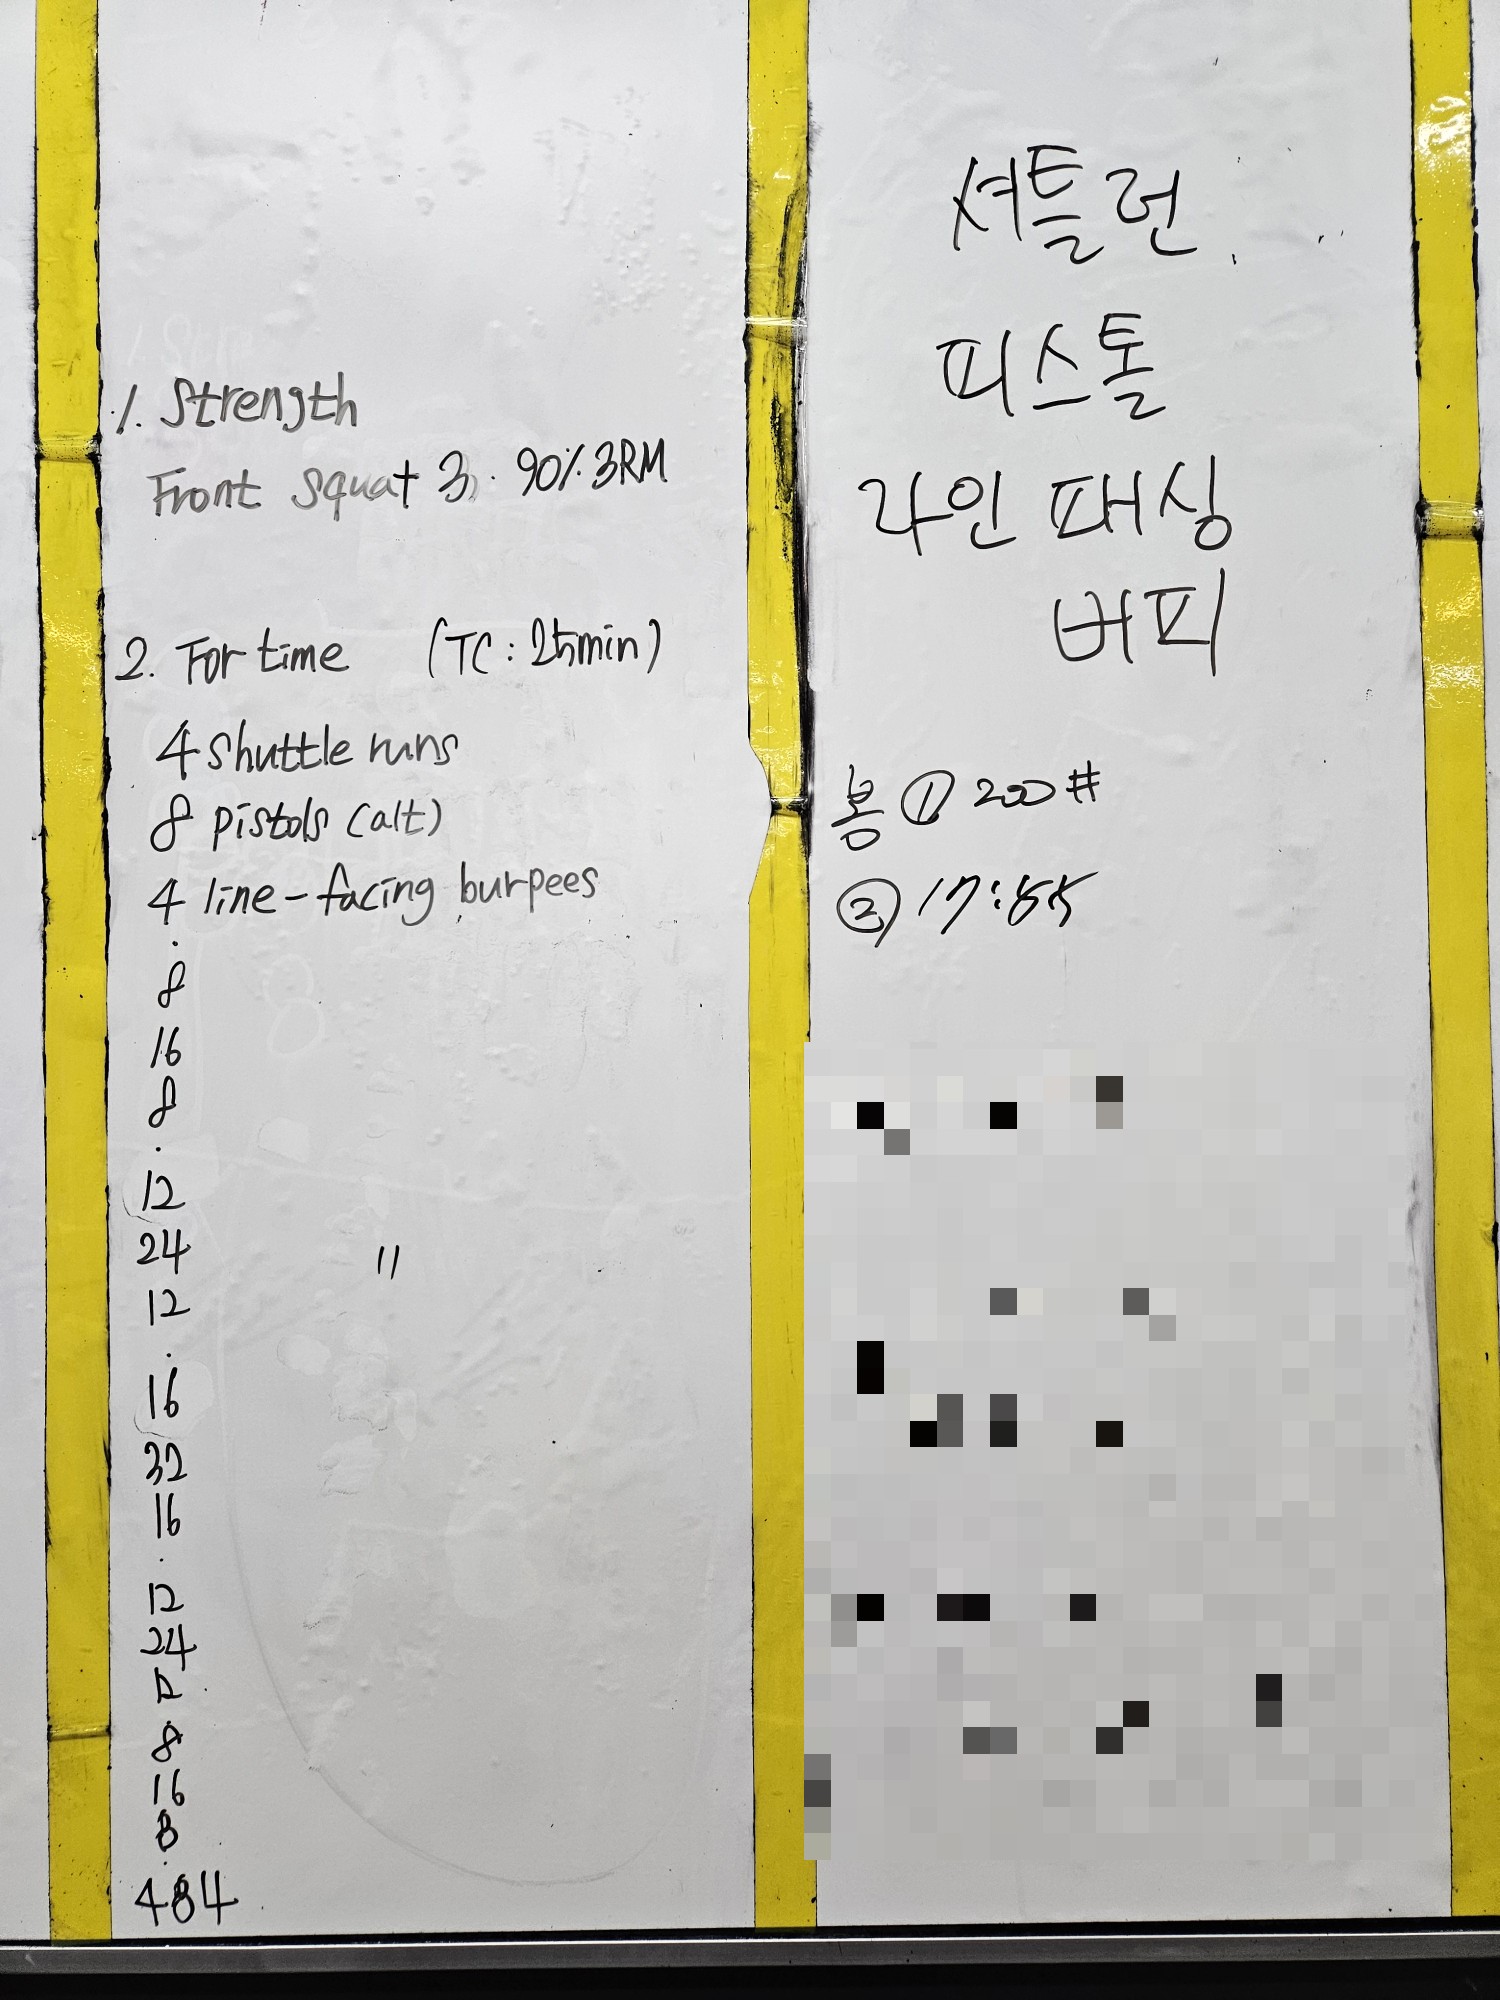 1. Strength
Front squat 3, 90% 3RM
2. For time (TC : 25min)
4 shuttle runs
8 pistols (alt)
4 line-facing burpees
.
8
16
8
.
12
24 "
12
.
16
32
16
.
12
24
12
.
8
16
8
.
4 8 4
셔틀런
피스톨
라인 패싱
버피
봉 ① 200#
② 17:55